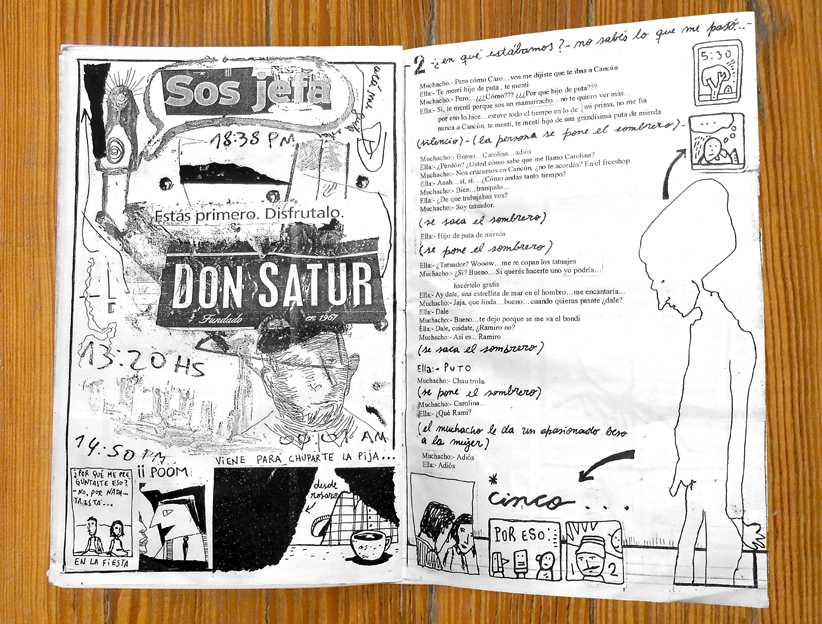 Sos jefa
18:38 PM
Estás primero. Disfrutalo.
DON SATUR
Fundado en 1967
13:20 HS
AM
14:50 PM
VIENE PARA CHUPARTE LA PIJA...
¿PER QUÉ ME PRE
GUNTASTE ESO?
- NO, POR NADA -
YA ESTÁ...
EN LA FIESTA
¡¡ POOM
desde
rosario
2 -¿en qué estábamos? - no sabés lo que me pasó...-
5:30
Muchacho:- Pero cómo Caro…vos me dijiste que te ibas a Cancún
Ella:- Te mentí hijo de puta , te mentí
Muchacho:- Pero…¿¿¿Cómo??? ¿¿¿Por qué hijo de puta???
Ella:- Si, te mentí porque sos un mamarracho…no te quiero ver más…
por eso lo hice…estuve todo el tiempo en lo de mi prima, no me fui
nunca a Cancún, te mentí, te mentí hijo de una grandísima puta de mierda
(silencio) - (la persona se pone el sombrero) -
Muchacho:- Bueno…Carolina…adiós
Ella:- ¿Perdón? ¿Usted cómo sabe que me llamo Carolina?
Muchacho:- Nos cruzamos en Cancún, ¿no te acordás? En el freeshop
Ella:- Aaah…si, si… ¿Cómo andas tanto tiempo?
Muchacho:- Bien…tranquilo…
Ella:- ¿De que trabajabas vos?
Muchacho:- Soy tatuador.
(se saca el sombrero)
Ella:- Hijo de puta de mierda
(se pone el sombrero)
Ella:- ¿Tatuador? Wooow…me re copan los tatuajes
Muchacho:- ¿Si? Bueno…Si querés hacerte uno yo podría…
hacértelo gratis
Ella:- Ay dale, una estrellita de mar en el hombro…me encantaria…
Muchacho:- Jaja, que linda…bueno…cuando quieras pasate ¿dale?
Ella:- Dale
Muchacho:- Bueno…te dejo porque se me va el bondi
Ella:- Dale, cuidate, ¿Ramiro no?
Muchacho:- Asi es... Ramiro
(se saca el sombrero)
Ella:- PUTO
Muchacho:- Chau trola.
(se pone el sombrero)
Muchacho:- Carolina…
Ella:- ¿Qué Rami?
(el muchacho le da un apasionado beso
a la mujer)
Muchacho:- Adiós
Ella:- Adiós
* cinco ...
POR ESO...
2